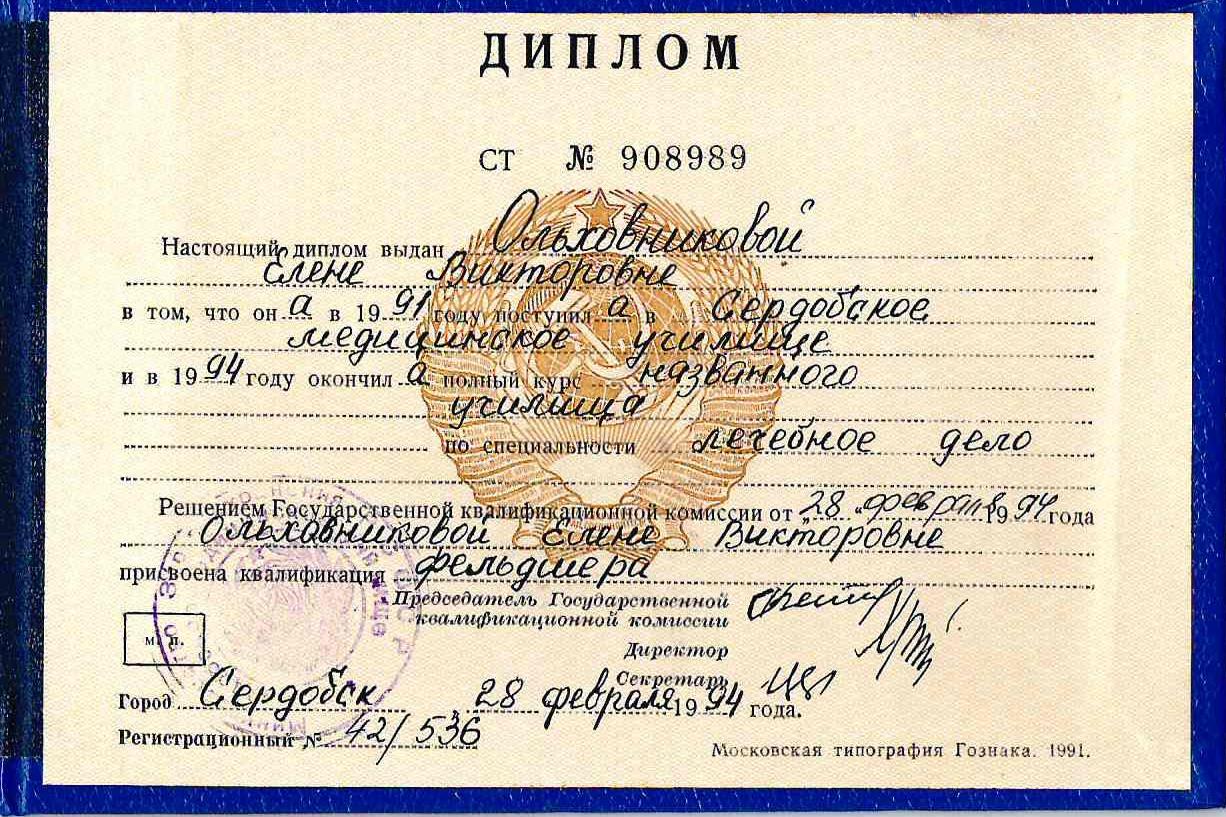 ДИПЛОМ
СТ № 908989
Настоящий диплом выдан Ольховниковой
Елене Викторовне
в том, что он а в 19 91 году поступил а в Сердобское
медицинское училище
и в 19 94 году окончил а полный курс названного
училища
по специальности лечебное дело
Решением Государственной квалификационной комиссии от „28“ февраля 19 94 года
Ольховниковой Елене Викторовне
присвоена квалификация фельдшера
Председатель Государственной
квалификационной комиссии
Директор
М. П.
Секретарь
Город Сердобск 28 февраля 19 94 года.
Регистрационный № 42/536
Московская типография Гознака. 1991.